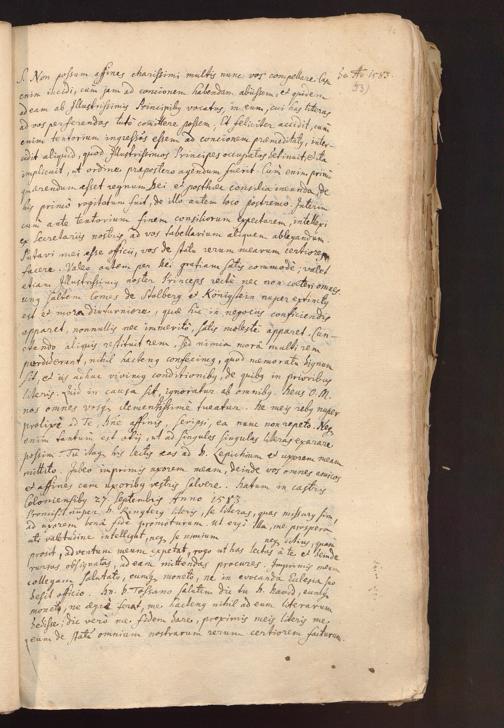 S. Non possum affines charissimi multis nunc vos compellare. Cœ
enim incidi, cum jam ad concionem habendam abüssem, et quidem
ad eam ab Illustrissimis Principibus vocatus, in eum, cui has literas
ad vos perferendas tutò comittere possem. Ut feliciter accidit, cum
enim tentorium ingressus essem ad concionem præmeditatus, inter-
cidit aliquid, quod Illustrissimos Principes occupatos detinuit, et ita
implicuit, ut ordine præpostero agendum fuerit. Cum enim primò
quærendum esset regnum Dei et posthæc consilia ineunda, de
his primò rogitatum fuit, de illo autem loco postremo. Interim
cum ante tentorium finem consiliorum expectarem, intellexi
ex Secretariis nostris ad vos tabellarium aliquem ablegandum.
Putavi mei esse officii, vos de statu rerum mearum certiorem
facere. Valeo autem per Dei gratiam satis commodè, valet
etiam Illustrissimus noster Princeps rectè nec non cæteri omnes.
unus saltem Comes de Stalberg et Königstein nuper extinctus
est et mora diuturniore, quæ hic in negocus conficiendis
apparet, nonnullis nec immeritò, satis molesta apparet. Cun-
ctando aliquis restituit rem. Sed nimia morâ multi rem
perdiderunt, nihil hactenus confecimus, quod memoratu dignum
sit, et us adhuc vivimus conditionibus, de quibus in prioribus
literis. Quid in causa sit, ignoratur ab omnibus. Deus O. M.
nos omnes vosque clementissimè tueatur. De meis rebus nuper
prolixè ad Te, Dne affinis, scripsi, ea nunc non repeto. Neq
enim tantum est otii, ut ad singulos singulas literas exarare
possim. Tu itaq his lectis eas ad D. Lepichium et uxorem meam
mittito. Jubeo imprimis uxorem meam, deinde vos omnes amicos
et affines cum uxoribus vestris salvere. Datum in castris
Coloniensibus 27. Septembris Anno 1583
Promisit nuper D. Ringlery literis, se literas, quas missurus sim,
ad uxorem bonâ fide promoturum. Ut ergò illa, me prospera
uti valetudine intelligat, neq se nimium
neq citius, quam
prosit, adventum meum expetat, rogo ut has lectas à te et deinde
rursus obsignatas, ad eam mittendas procures. Imprimis meum
collegam Salutato, eumq moneto, ne in evocanda Ecclesia suo
desit officio. Dn. D. Tossano salutem dic tu D. David, eumq
moneto, ne ægrè ferat, me hactenus nihil ad eum literarum
dedisse: dic verò me fidem dare, proximis meis literis me
eum de statu omnium nostrarum rerum certiorem facturum.
Ao 1583.
53)